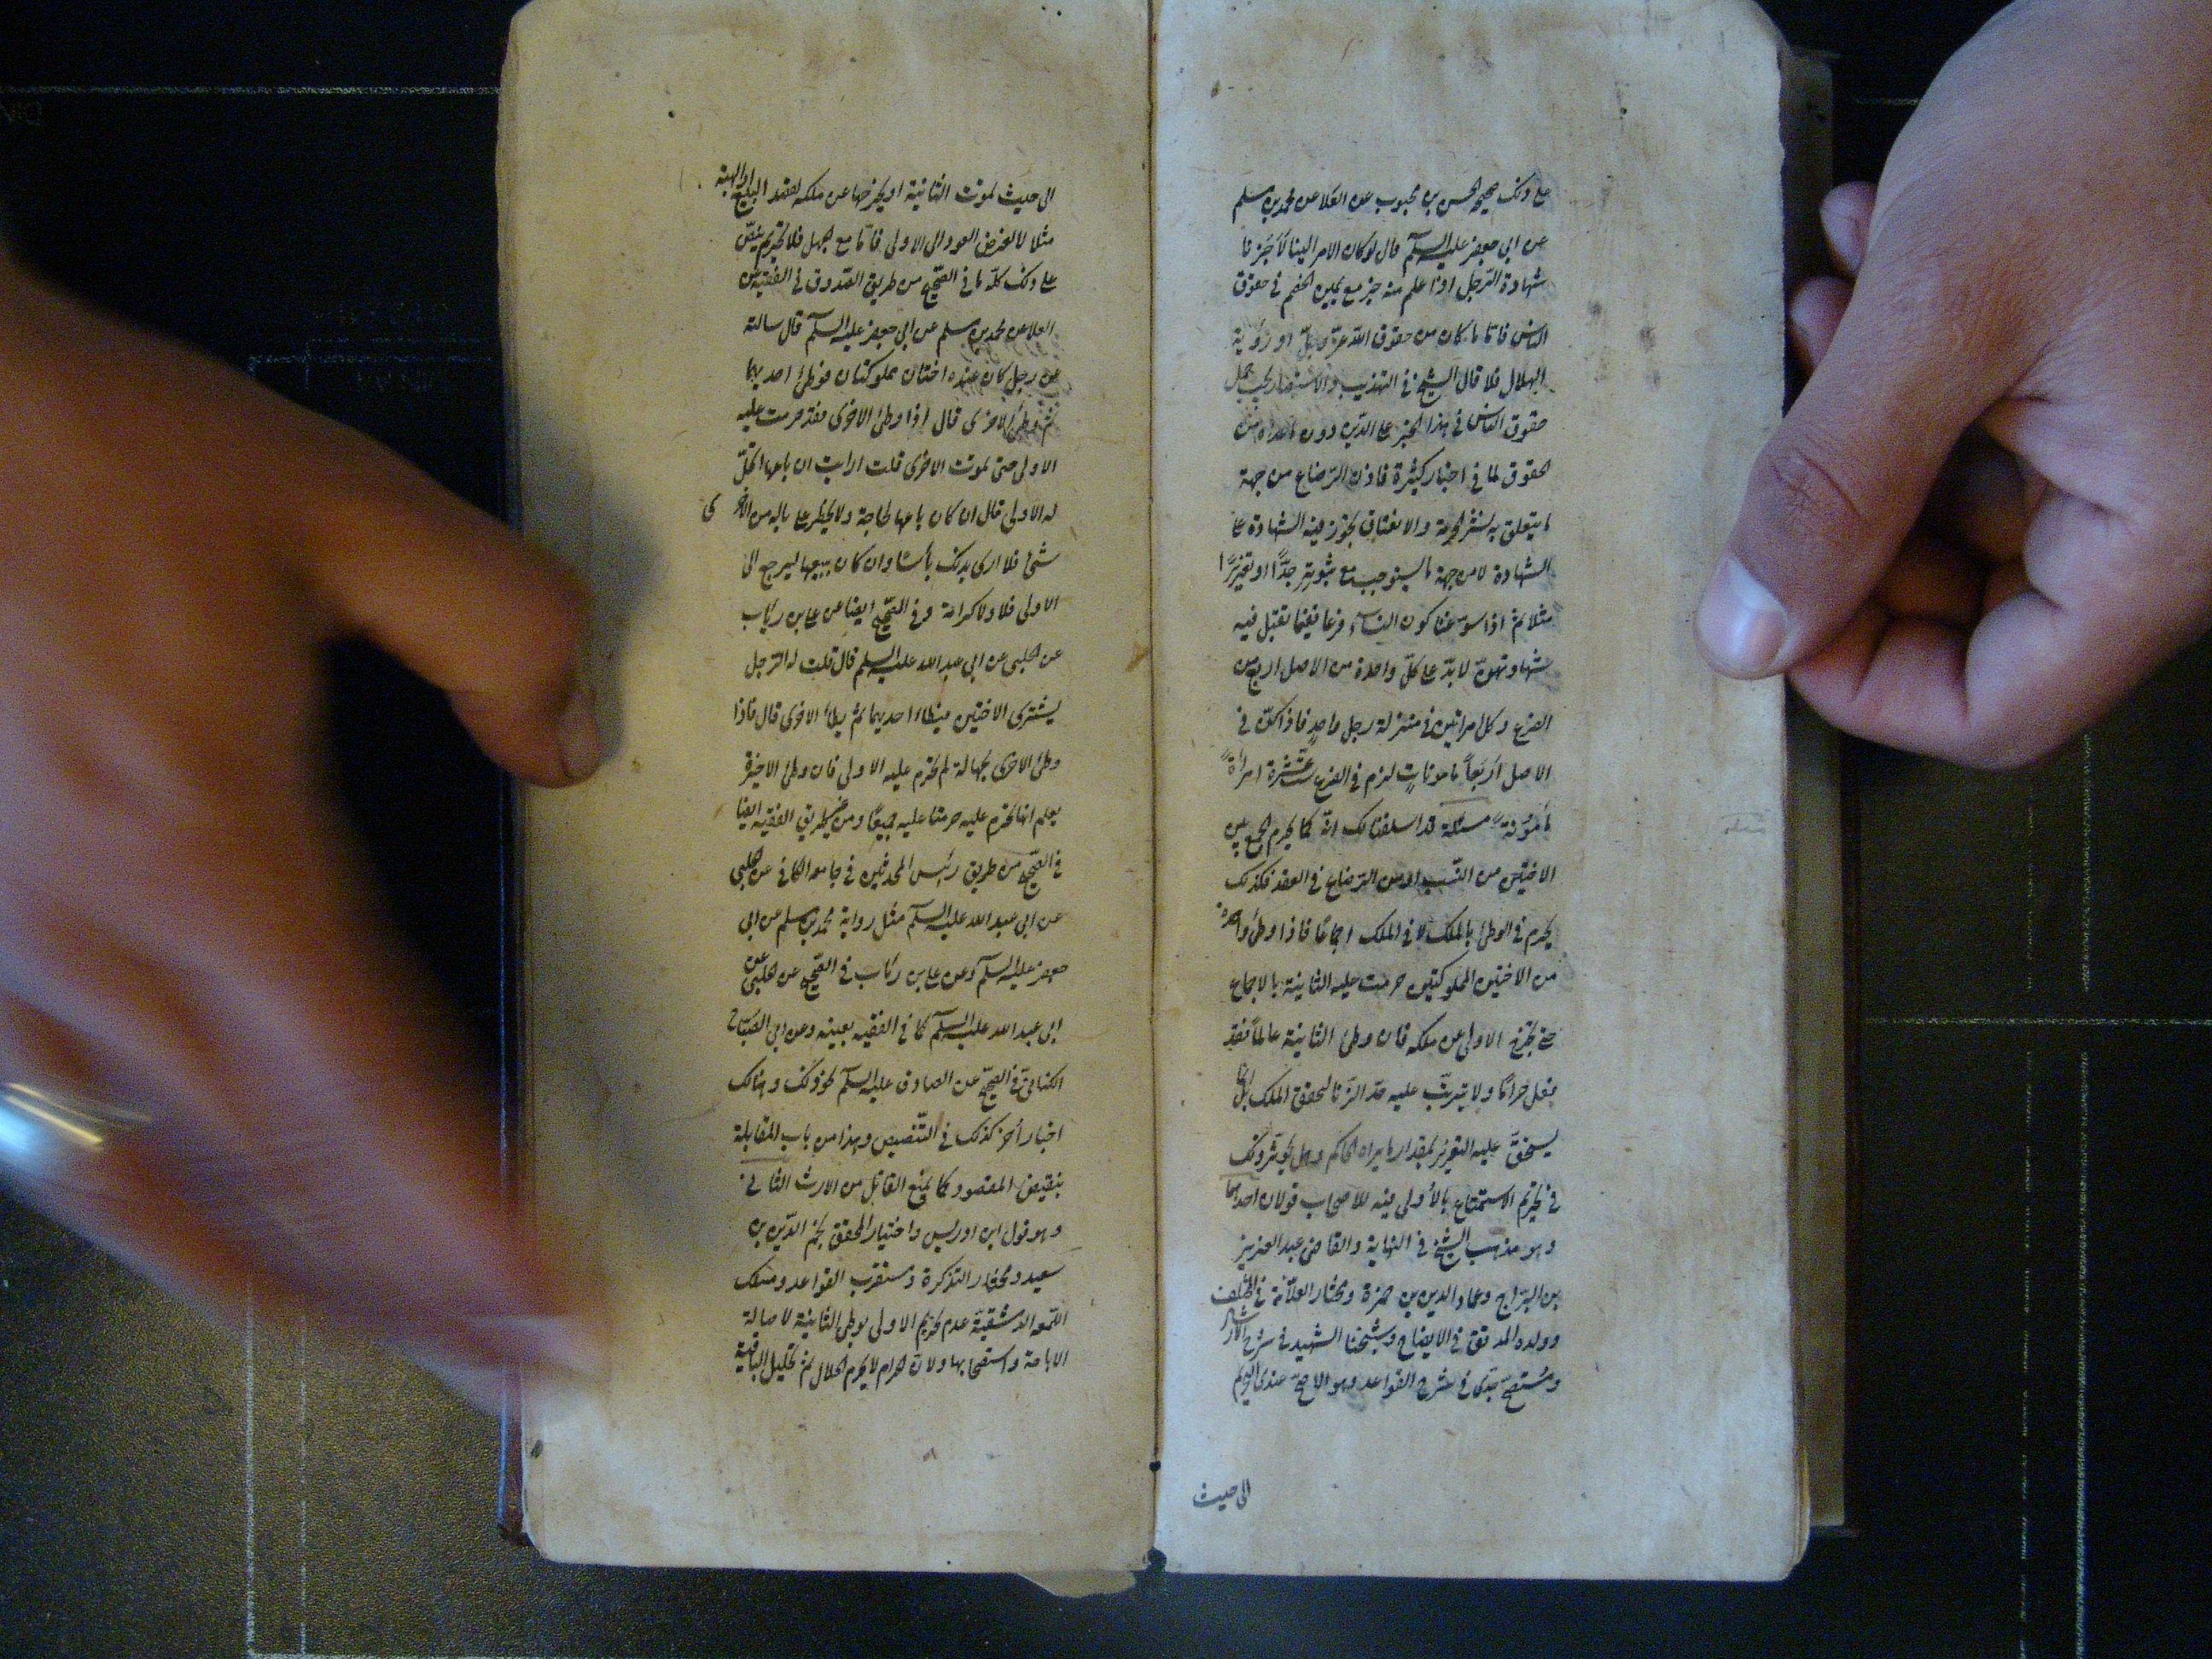 على ذلك صحيحة الحسن بن محبوب عن العلا عن محمد بن مسلم
عن ابى جعفر عليه السلم قال لو كان الامر الينا لأجزنا
شهادة الرّجل اذا علم منه خير مع يمين الخصم فى حقوق
الناس فامّا ما كان من حقوق اللّه عزّ وجلّ او رؤية
الهلال فلا قال الشيخ فى التهذيب والاستبصار يجب حمل
حقوق الناس فى هذا الخبر على الدّين دون ما عداه من
الحقوق لما فى اخبار كثيرة فاذن الرّضاع من جهة
ما يتعلق به لنشر الحرمة والانعتاق يجوز فيه الشهادة على
الشهادة لا من جهة ما يستوجب مع ثبوته حدًّا او تعزيرًا
مثلا ثم اذا سوّغنا كون النساء فرعا فيما تقبل فيه
شهادتهنّ لا بدّ على كلّ واحدة من الاصل اربع من
الفرع وكل امراتين فى منزلة رجل واحدٍ فاذا كنّ فى
الاصل اربعاً مامونات لزم فى الفرع ستّ عشرة امراة
مأمونة مسئلة قد اسلفنا لك انّه كما يحرم الجمع بين
الاختين من النّسب او من الرّضاع فى العقد فكذلك
يحرم فى الوطئ بالملك لا فى الملك اجماعًا فاذا وطئ واحدة
من الاختين المملوكتين حرمت عليه الثانية بالاجماع
حتى تخرج الاولى عن ملكه فان وطئ الثانية عالماً فقد
فعل حرامًا ولا يترتّب عليه حدّ الزّنا لتحقق الملك بل انّما
يستحقّ عليه التعزير بمقدار ما يراه الحاكم وهل يؤثّر ذلك
فى تحريم الاستمتاع بالأولى فيه للاصحاب قولان احدهما
وهو مذهب الشيخ فى النهاية والقاضى عبد العزيز
بن البرّاج وعماد الدين بن حمزة ومختار العلّامة فى المختلف
وولده المدقق فى الايضاح وشيخنا الشهيد فى شرح الارشاد
ومستصحّ جدّى فى شرح القواعد وهو الاصحّ عندى التحريم
الى حيث
الى حيث تموت الثانية او يخرجها عن ملكه لعقد البيع او الهبة
مثلا لا لغرض العود الى الاولى فامّا مع الجهل فلا تحريم ينصّ
على ذلك كلّه ما فى الصّحيح من طريق الصّدوق فى الفقيه عن
العلا عن محمد بن مسلم عن ابى جعفر عليه السلم قال سالته
عن رجل كان عنده اختان مملوكتان فوطئ احديهما
ثم وطئ الاخرى قال اذا وطئ الاخرى فقد حرمت عليه
الاولى حتى تموت الاخرى قلت ارايت ان باعها اتحلّ
له الاولى قال ان كان باعها لحاجة ولا يخطر على باله من الاخرى
شئ فلا ارى بذلك بأسًا وان كان يبيعها ليرجع الى
الاولى فلا ولا كرامة وفى الصّحيح ايضا عن على بن رئاب
عن الحلبى عن ابى عبد الله عليه السلم قال قلت له الرّجل
يشترى الاختين فيطاء احديهما ثم يطأ الاخرى قال فاذا
وطئ الاخرى بجهالة لم تحرم عليه الاولى فان وطئ الاخيرة
يعلم انها تحرم عليه حرمتا عليه جميعًا ومن غير طريق الفقيه ايضا
فى الصّحيح من طريق رئيس المحدثين فى جامعه الكافى عن الحلبى
عن ابى عبد الله عليه السلم مثل رواية محمد بن مسلم عن ابى
جعفر عليه السلم وعن على بن رئاب فى الصّحيح عن الحلبى عن
ابى عبد الله عليه السلم كما فى الفقيه بعينه وعن ابى الصّباح
الكنانىّ فى الصّحيح عن الصادق عليه السلم نحو ذلك وهنالك
اخبار أخر كذلك فى التّنصيص وهذا من باب المقابلة
بنقيض المقصود كما يمنع القاتل من الارث الثانى
وهو قول ابن ادريس واختيار المحقق نجم الدّين بن
سعيد ومختار التذكرة ومستقرب القواعد ومسلك
اللّمعه الدمشقيّة عدم تحريم الاولى بوطى الثانية لاصالة
الاباحة واستصحابها ولانّ الحرام لا يحرم الحلال ثم تحليل الباقية